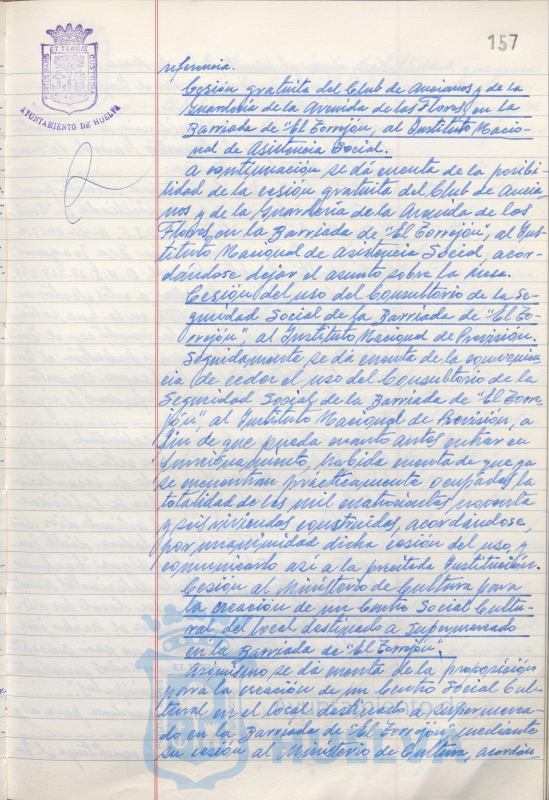 157
ET TERRÆ
CUSTODIA
AYUNTAMIENTO DE HUELVA
referencia.
Cesión gratuita del Club de Ancianos y de la
Guardería de la Avenida de las Flores, en la
Barriada de "El Torrejón", al Instituto Nacio-
nal de Asistencia Social.
A continuación se dá cuenta de la posibi-
lidad de la cesión gratuita del Club de Ancia-
nos y de la Guardería de la Avenida de los
Flores, en la Barriada de "El Torrejón", al Ins-
tituto Nacional de Asistencia Social, acor-
dándose dejar el asunto sobre la mesa.
Cesión del uso del Consultorio de la Se-
guridad Social de la Barriada de "El To-
rrejón", al Instituto Nacional de Previsión.
Seguidamente se dá cuenta de la convenien-
cia de ceder el uso del Consultorio de la
Seguridad Social, de la Barriada de "El Torre-
jón", al Instituto Nacional de Previsión, a
fin de que pueda cuanto antes entrar en
funcionamiento, habida cuenta de que ya
se encuentran prácticamente ocupadas la
totalidad de las mil cuatrocientas noventa
y seis viviendas construidas, acordándose
por unanimidad dicha cesión del uso, y
comunicarlo así a la precitada Institución.
Cesión al Ministerio de Cultura para
la creación de un Centro Social Cultu-
ral del local destinado a Supermercado
en la Barriada de "El Torrejón".
Asimismo se dá cuenta de la proposición
para la creación de un Centro Social Cul-
tural en el local destinado a supermerca-
do en la Barriada de "El Torrejón", mediante
su cesión al Ministerio de Cultura, acordán-
ET TERRÆ
Ayuntamiento